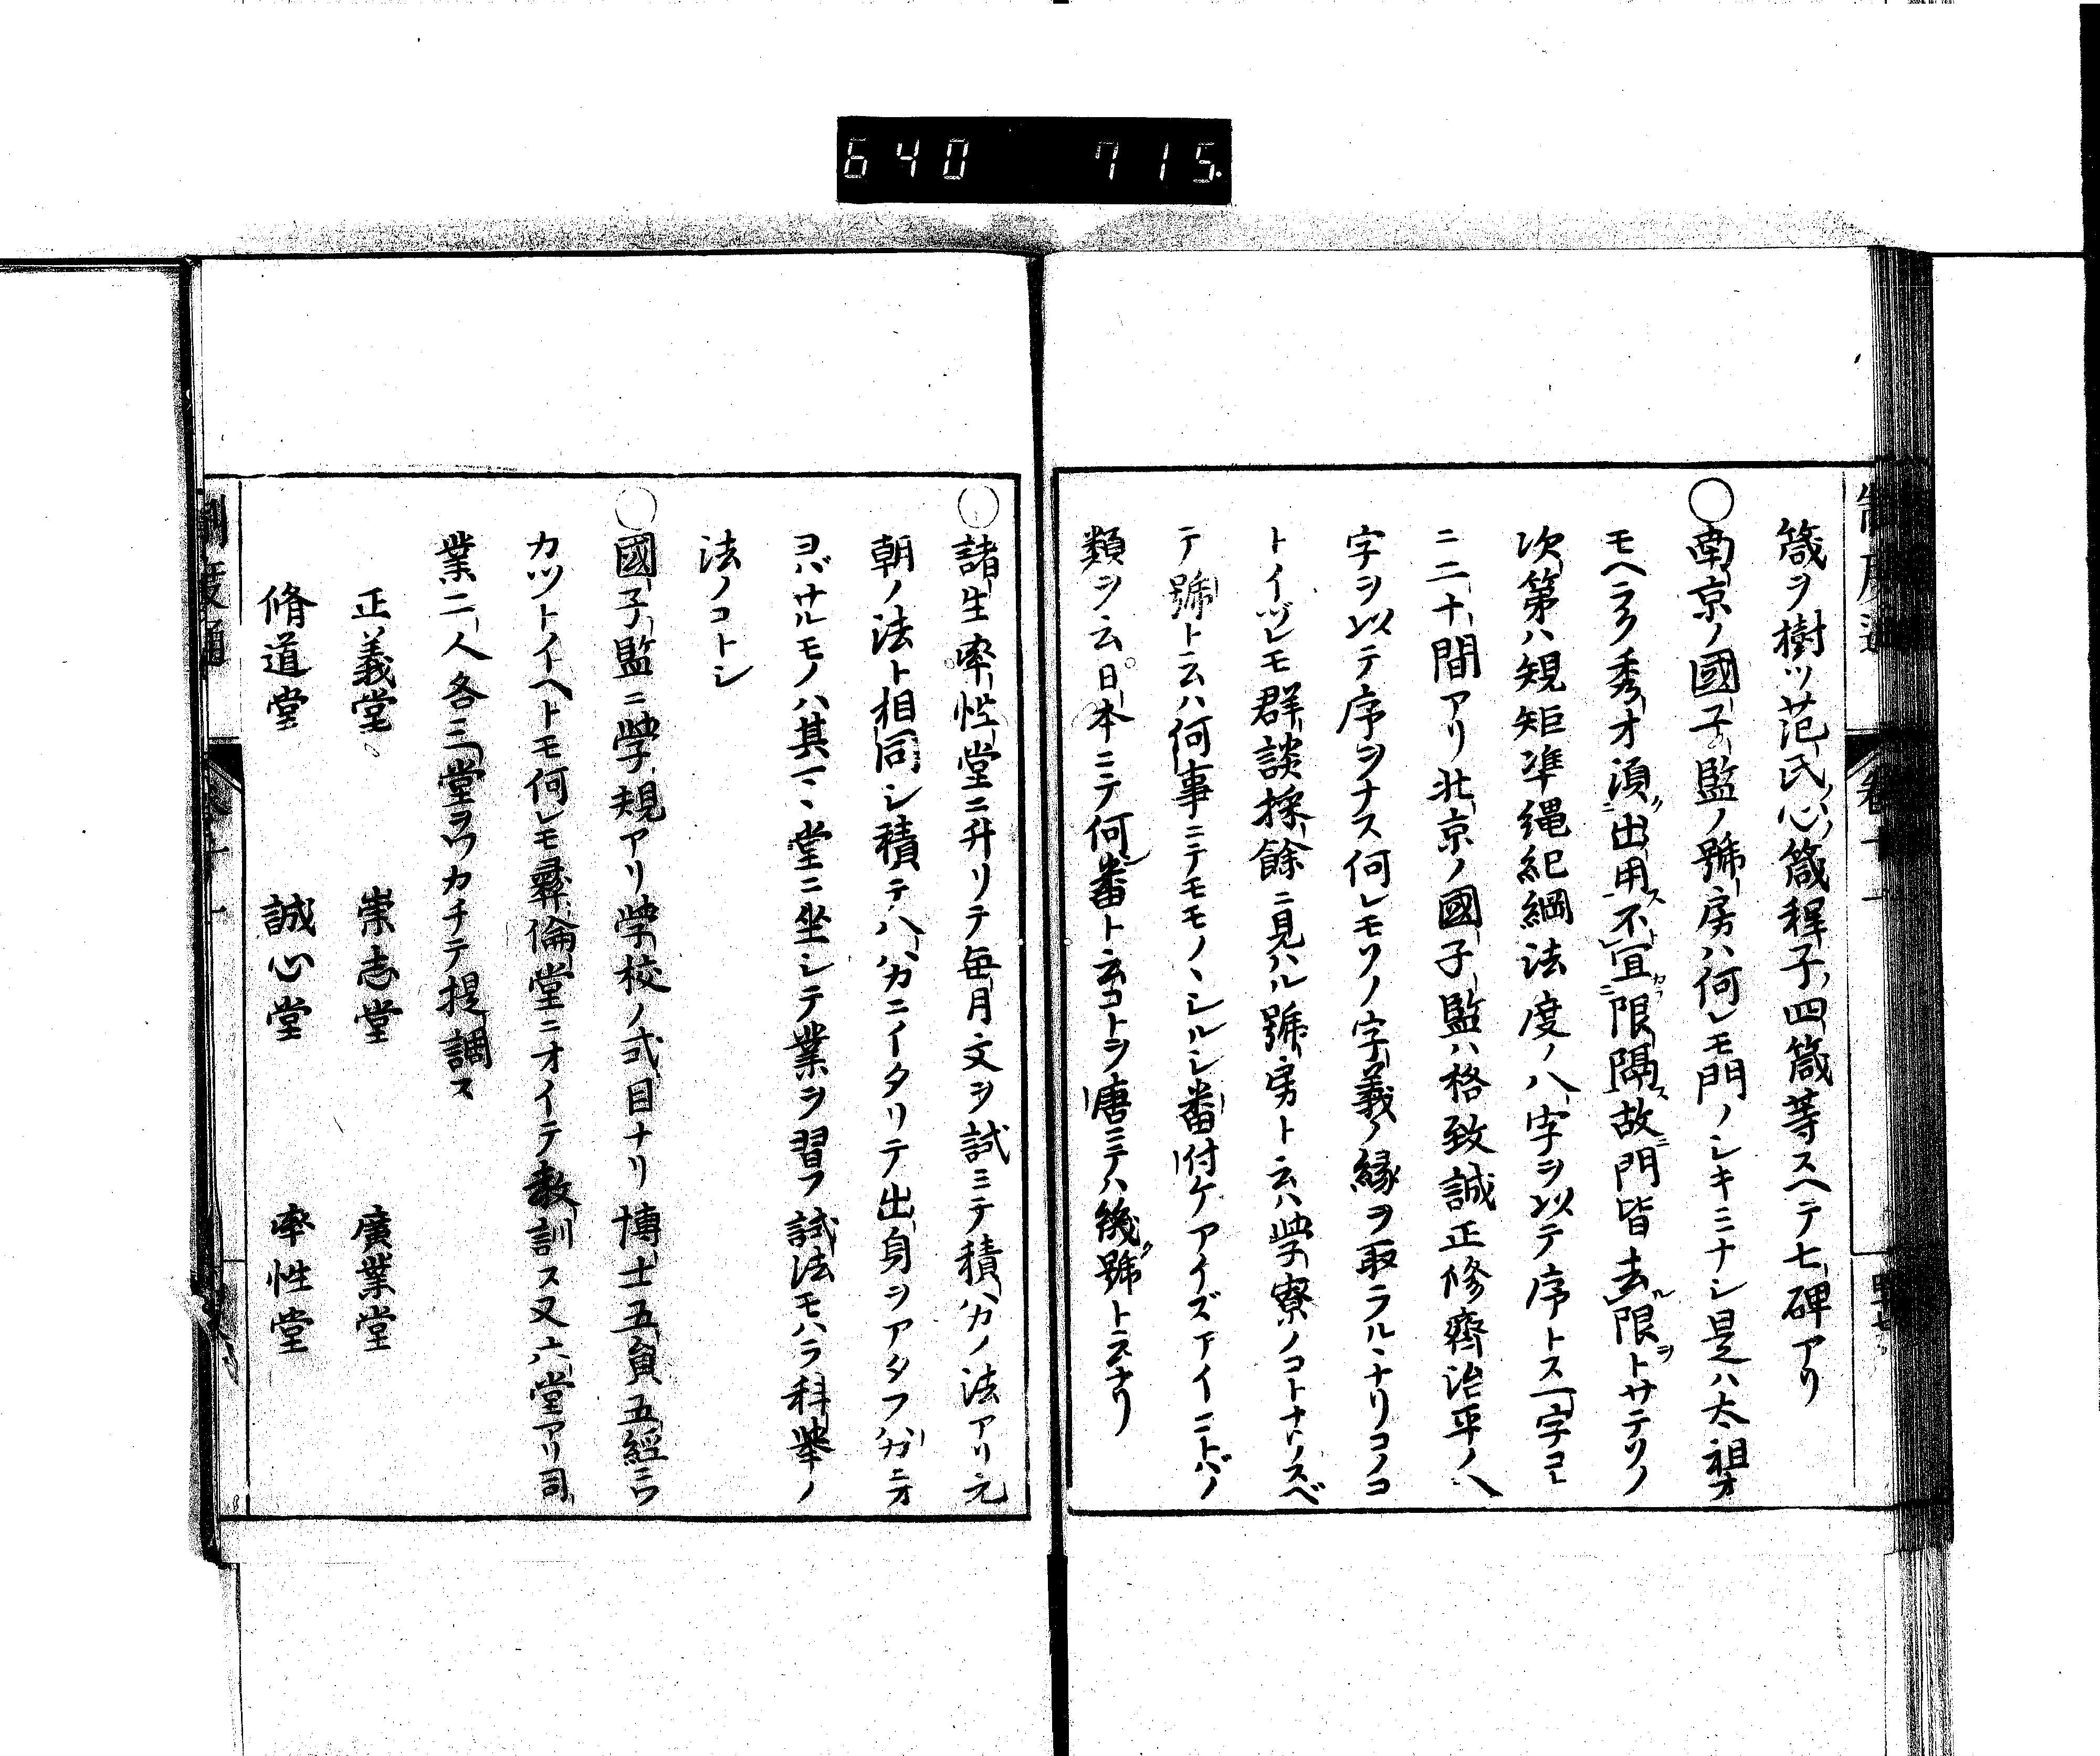 640 715.
箴ヲ樹ツ范氏心箴程子四箴等スヘテ七碑アリ
○南京ノ國子監ノ號房ハ何レモ門ノシキミナシ是ハ太祖オ
モヘラク秀才須ク出用ス不宜限隔ス故ニ門皆去ル限ヲトサテソノ
次第ハ規矩準縄紀綱法度ノ八字ヲ以テ序トス一字コト
ニ二十間アリ北京ノ國子監ハ格致誠正修齊治平ノ八
字ヲ以テ序ヲナス何レモソノ字義ノ縁ヲ取ラルヽナリコノコ
トイヅレモ群談採餘ニ見ハル號房ト云ハ學寮ノコトナリスベ
テ號ト云ハ何事ニテモモノヽシルシ番付ケアイズアイコトバノ
類ヲ云日本ニテ何番ト云コトヲ唐ニテハ幾號ト云ナリ
○諸生率性堂ニ升リテ毎月文ヲ試ミテ積分ノ法アリ元
朝ノ法ト相同シ積テ八分ニイタリテ出身ヲアタフ八分ニオ
ヨバサルモノハ其一ヽ堂ニ坐シテ業ヲ習フ試法モハラ科擧ノ
法ノコトシ
○國子監ニ學規アリ学校ノ式目ナリ博士五員五經ニワ
カツトイヘトモ何レモ彜倫堂ニオイテ教訓ス又六堂アリ司
業二人各三堂ヲワカチテ提調ス
正義堂 崇志堂 廣業堂
脩道堂 誠心堂 率性堂